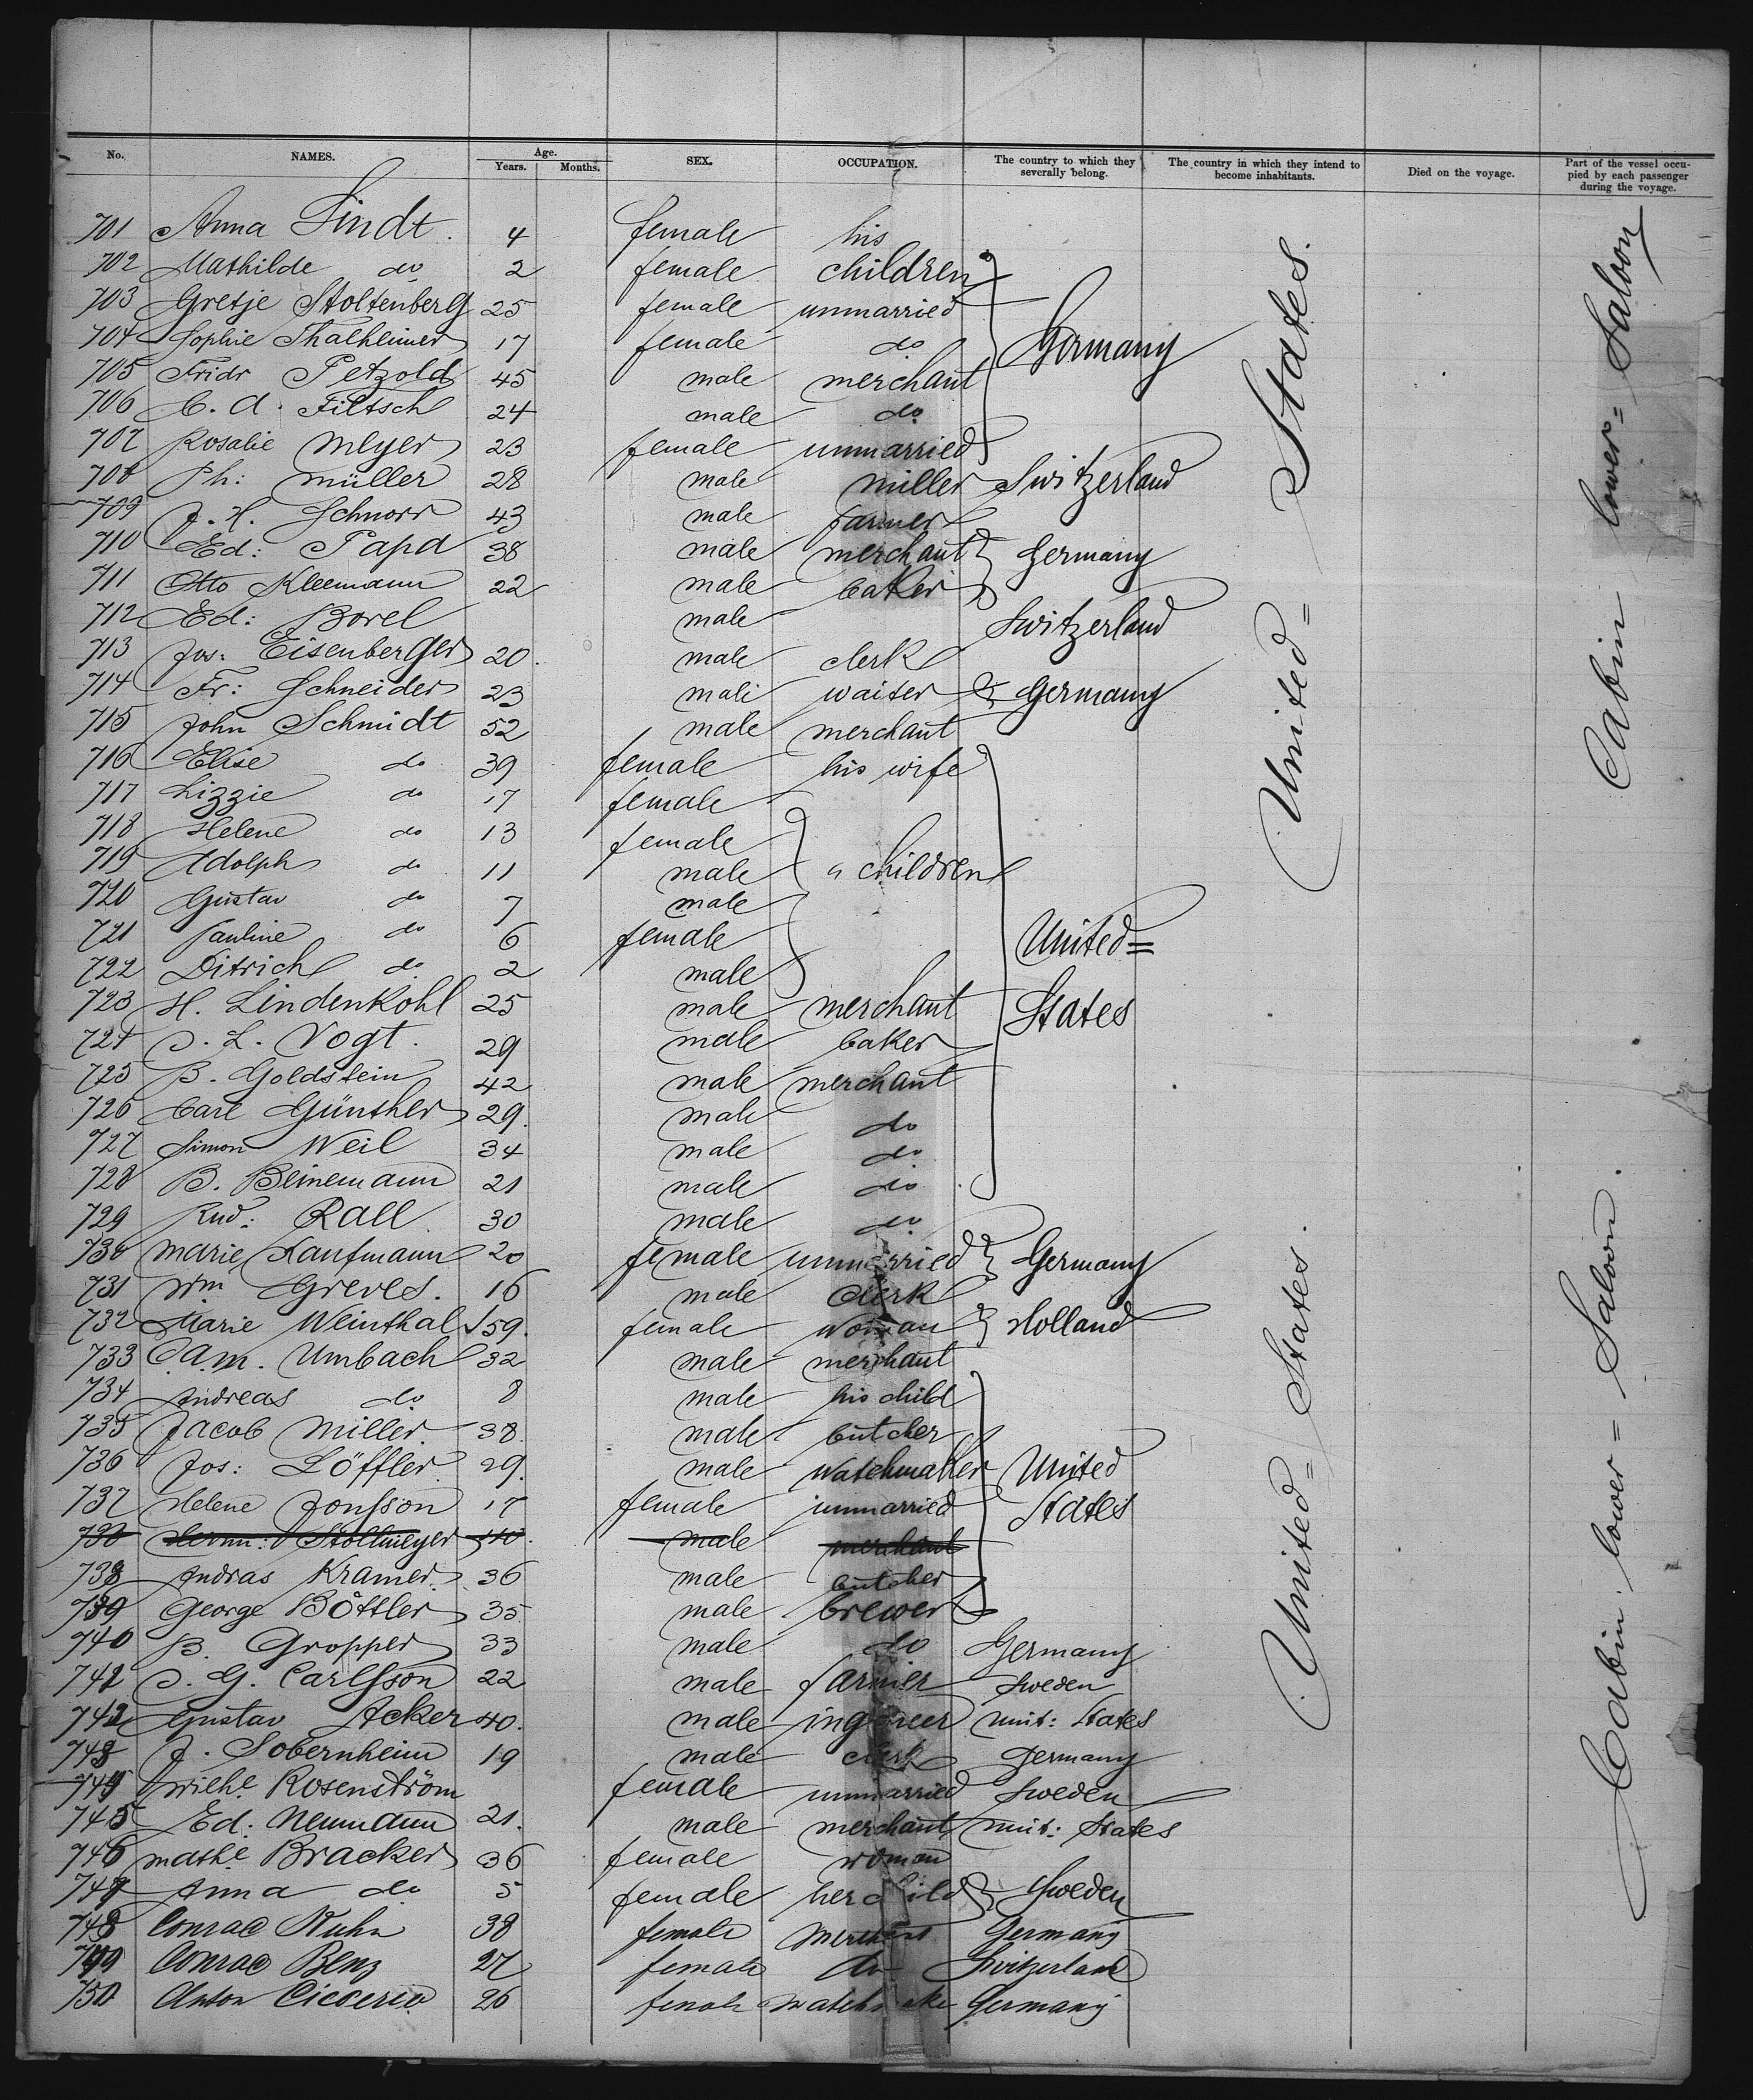 No. NAMES. Age. Years. Months. SEX. OCCUPATION. The country to which they severally belong. The country in which they intend to become inhabitants. Died on the voyage. Part of the vessel occupied by each passenger during the voyage.
701 Anna Lindt. 4 female his
702 Mathilde do 2 female children
703 Gretje Stoltenberg 25 female unmarried
704 Sophie Thalheimer 17 female do Germany
705 Fridr Petzold 45 male merchant
706 C. A. Filtsch 24 male do
707 Rosalie Meyer 23 female unmarried
708 Ph: Müller 28 male miller Switzerland
709 J. H. Schnorr 43 male farmer
710 Ed: Papa 38 male merchant Germany
711 Otto Kleemann 22 male baker
712 Ed: Borel male Switzerland
713 Jos: Eisenberger 20. male clerk
714 Fr: Schneider 23 male waiter Germany
715 John Schmidt 52 male merchant
716 Elise do 39 female his wife
717 Lizzie do 17 female
718 Helene do 13 female
719 Adolph do 11 male " children
720 Gustav do 7 male
721 Pauline do 6 female United=
722 Ditrich do 2 male
723 H. Lindenkohl 25 male merchant States
724 L. Vogt. 29 male baker
725 B. Goldstein 42 male merchant
726 Carl Günther 29. male do
727 Simon Weil 34 male do
728 B. Beinemann 21 male do
729 Rud: Rall 30 male do
730 Marie Kaufmann 20 female unmarried Germany
731 Wm Greves. 16 male clerk
732 Marie Weinthal 59. female woman Holland
733 C. A. M. Umbach 32 male merchant
734 Andreas do 8 male his child
735 Jacob Miller 38. male butcher
736 Jos: Löffler 29. male watchmaker United
737 Helene Jonsson 17 female unmarried States
738 Hermn: Stollmeyer 40. male merchant
738 Andras Kramer 36 male butcher
739 George Böttler 35 male brewer
740 B. Gropper 33 male do Germany
741 G. Carlsson 22 male farmer Sweden
742 Gustav Acker 40. male ingineer unit: States
743 J. Sobernheim 19 male clerk Germany
744 Wilhe Rosenström female unmarried Sweden
745 Ed: Neumann 21. male merchant unit: States
746 Mathe Bracker 36 female woman
747 Anna do 5 female her child Sweden
748 Conrad Kuhn 38 female Merchant Germany
749 Conrad Benz 27 female do Switzerland
750 Anton Cicceria 26 female watchmake Germany
United= States.
United= States.
Cabin lower= Saloon
Cabin lower= Saloon.